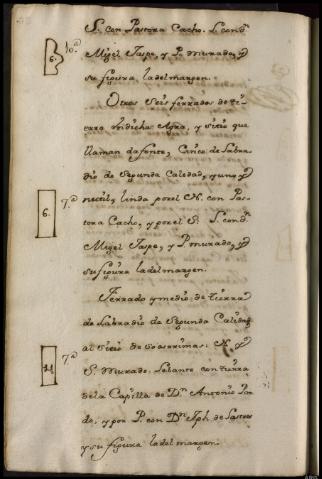 S. con Pastora Cacho. L. con dn.
6. 10.a Migel Taspe, y P. murado, y
su figura, la del margen.
Otros seis ferrados de ti-
erra en dicha Agra, y sitio que
llaman da fonte, Cinco de Labra-
dio de Segunda Calidad, y uno y
6. 7.a necill, linda por el N. con Pas-
tora Cacho, y por el S. L. con dn.
Migel Taspe, y P. murado, y
su figura la del margen.
Ferrado y medio de tierra
de Labradio de Segunda Calidad
al sitio de N. y
11 7.a S. murado. Lebante con tierra
de la Capilla de Dn. Antonio Par-
do, y por P. con Dn. Jph. de Castro
y su figura la del margen.